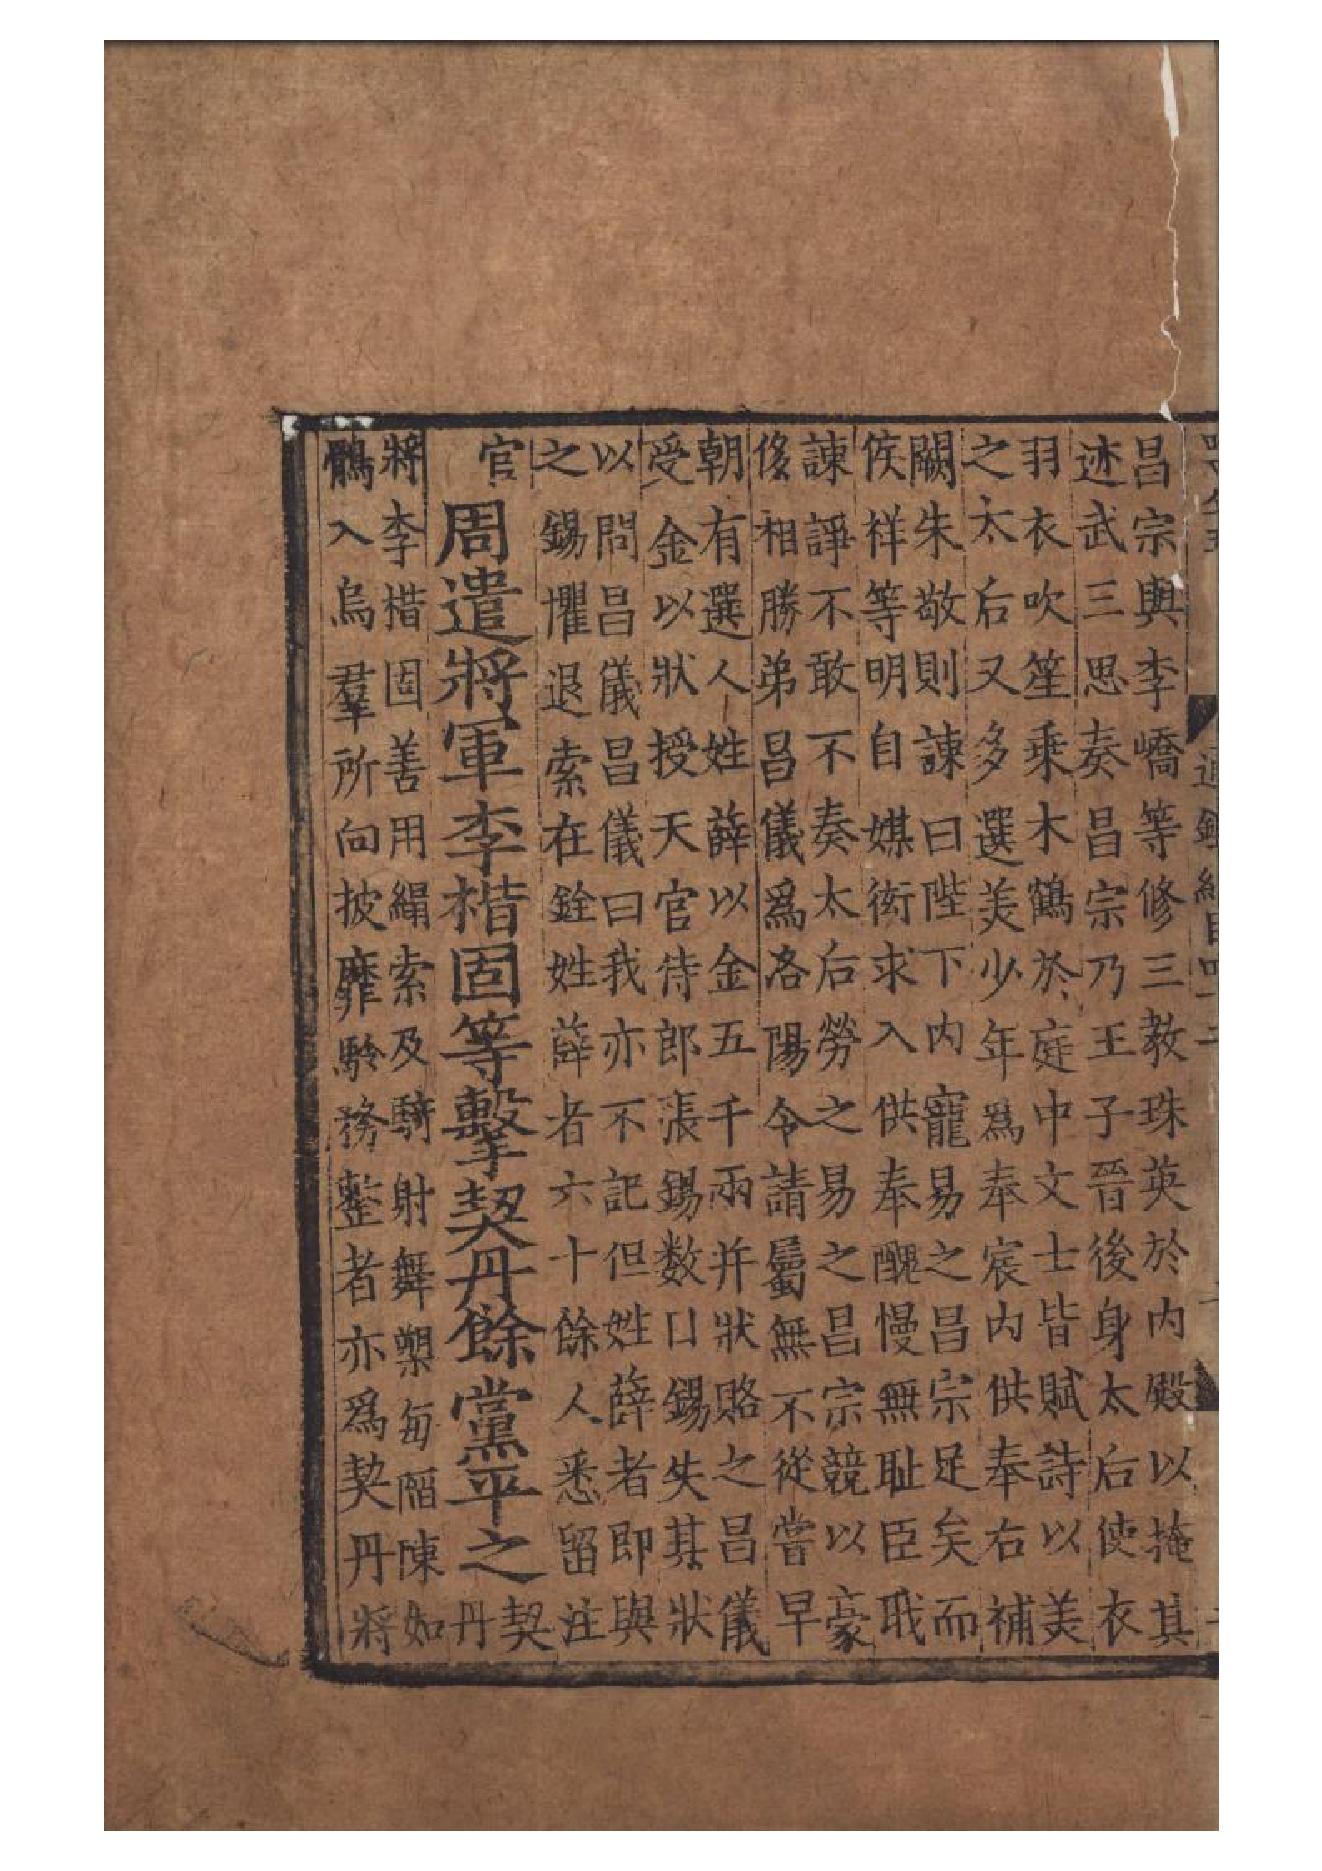 昌宗與李嶠等修三教珠英於内殿以掩其
迹武三思奏昌宗乃王子晉後身太后使衣
羽衣吹笙乘木鶴於庭中文士皆賦詩以美
之太后又多選美少年爲奉宸内供奉右補
闕朱敬則諫曰陛下内寵易之昌宗足矣而
侯祥等明自媒衒求入供奉醜慢無恥臣職
諫諍不敢不奏太后勞之易之昌宗競以豪
侈相勝弟昌儀爲洛陽令請屬無不從嘗早
朝有選人姓薛以金五千兩并狀賂之昌儀
受金以狀授天官侍郎張錫数日錫失其狀
以問昌儀昌儀曰我亦不記但姓薛者即與
之錫懼退索在銓姓薛者六十餘人悉留注
官
周遣將軍李楷固等擊契丹餘黨平之
契
丹
將李楷固善用絹索及騎射舞槊每陷陳如
鶻入烏羣所向披靡駱務整者亦爲契丹將